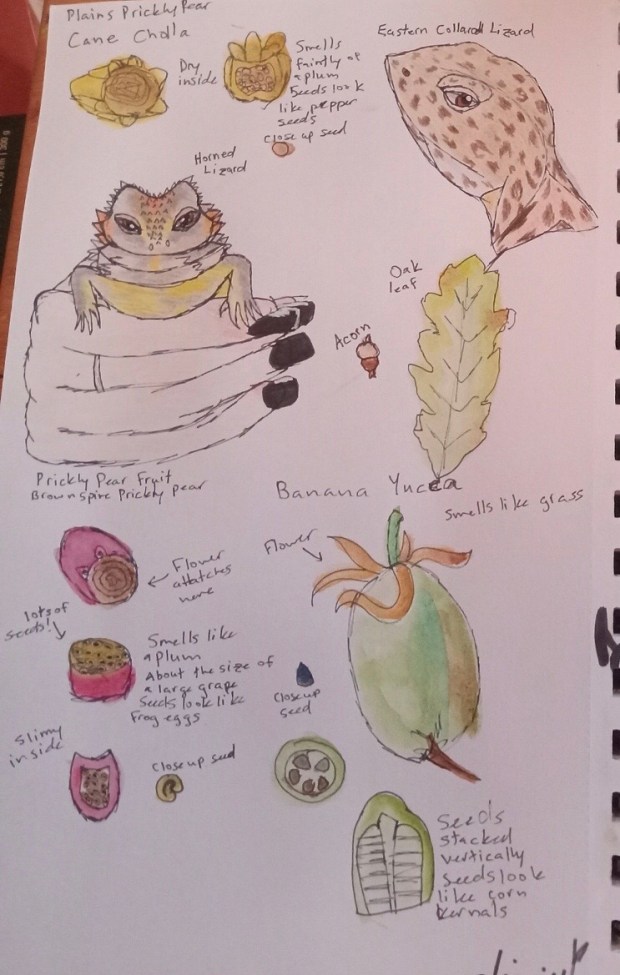 Plains Prickly Pear
Cane Cholla
Dry
inside
Smells
faintly of
a plum
Seeds look
like pepper
seeds
close up seed
Eastern Collared Lizard
Horned
Lizard
Oak
leaf
Acorn
Prickly Pear Fruit
Brownspine Prickly pear
Banana Yucca
smells like grass
Flower
Flower
attatches
here
lots of
seeds!
Smells like
a plum
About the size of
a large grape
Seeds look like
Frog eggs
Close up
seed
Slimy
inside
close up seed
Seeds
stacked
vertically
seeds look
like corn
kernals